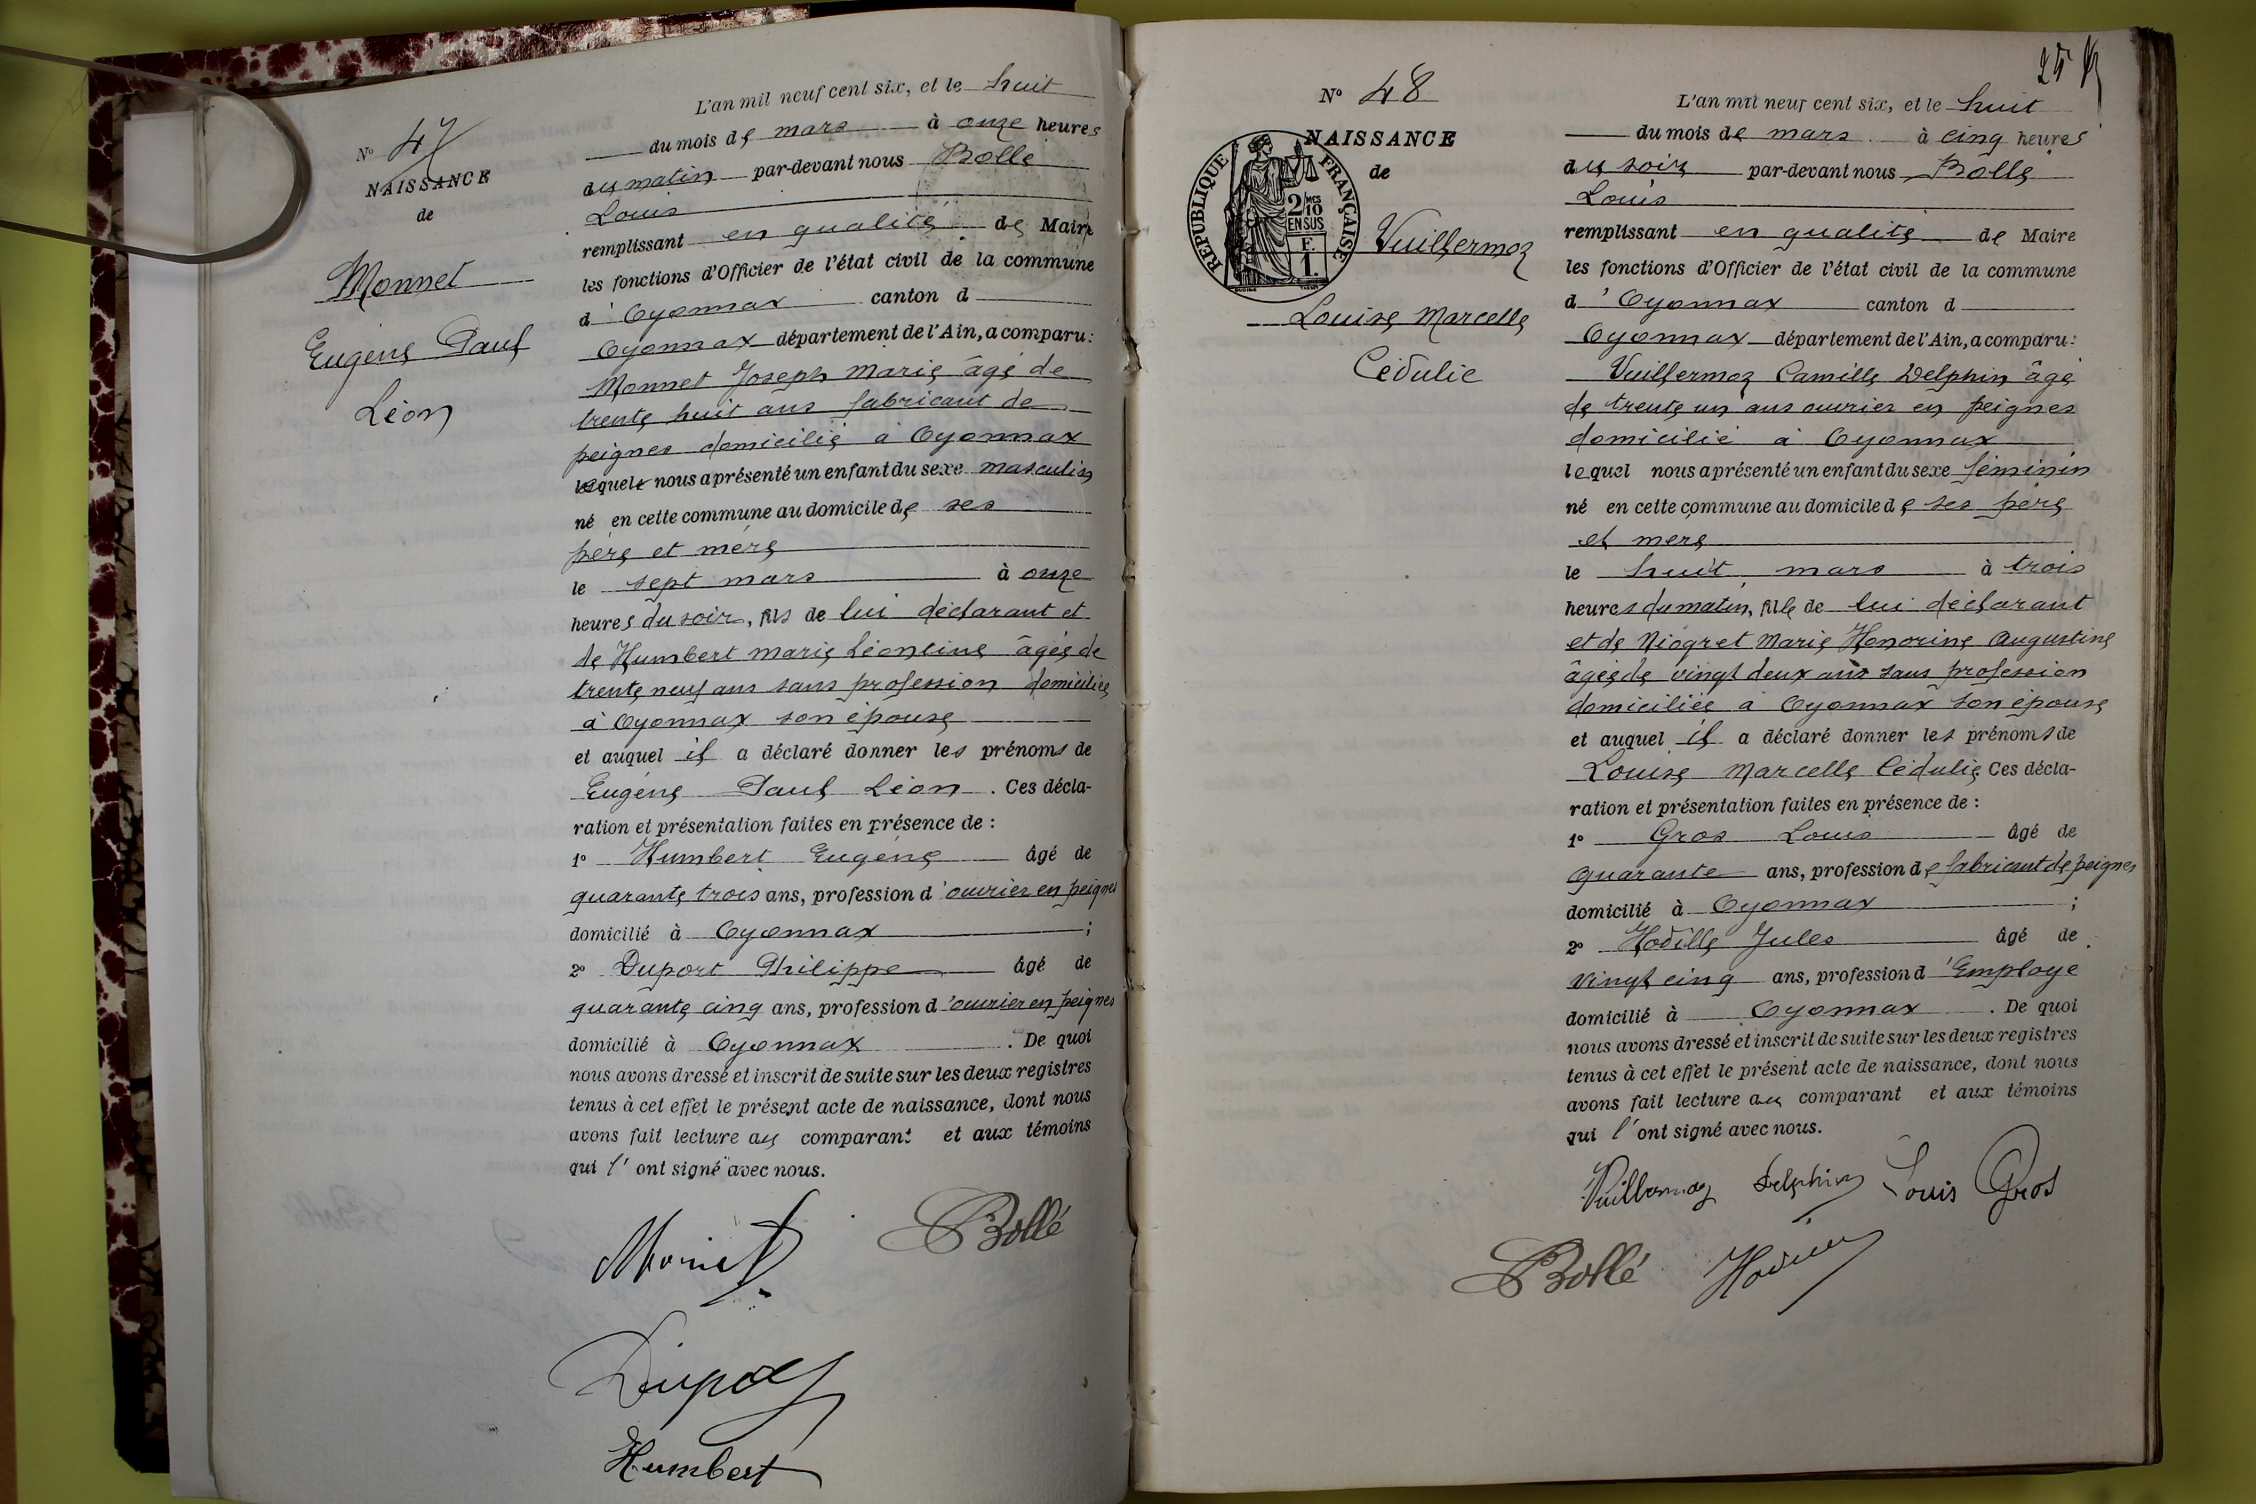 N° 47
NAISSANCE
de
Monnet
Eugène Paul
Léon
L'an mil neuf cent six, et le huit
du mois de mars à onze heures
du matin par-devant nous Bollé
Louis
remplissant en qualité de Maire
les fonctions d'Officier de l'état civil de la commune
d'Oyonnax canton d
Oyonnax département de l'Ain, a comparu:
Monnet Joseph Marie âgé de
trente huit ans fabricant de
peignes domicilié à Oyonnax
lequel nous a présenté un enfant du sexe masculin
né en cette commune au domicile de ses
père et mère
le sept mars à onze
heures du soir, fils de lui déclarant et
de Humbert Marie Léontine âgée de
trente neuf ans sans profession domiciliée
à Oyonnax son épouse
et auquel il a déclaré donner les prénoms de
Eugène Paul Léon. Ces décla-
ration et présentation faites en présence de :
1° Humbert Eugène âgé de
quarante trois ans, profession d'ouvrier en peignes
domicilié à Oyonnax ;
2° Duport Philippe âgé de
quarante cinq ans, profession d'ouvrier en peignes
domicilié à Oyonnax . De quoi
nous avons dressé et inscrit de suite sur les deux registres
tenus à cet effet le présent acte de naissance, dont nous
avons fait lecture au comparant et aux témoins
qui l'ont signé avec nous.
Monnet Bollé
Duport
Humbert
25
N° 48
NAISSANCE
de
RÉPUBLIQUE FRANÇAISE
2/MES
10
EN SUS
F.
1.
Vuillermoz
Louise Marcelle
Cédulie
L'an mil neuf cent six, et le huit
du mois de mars à cinq heures
du soir par-devant nous Bollé
Louis
remplissant en qualité de Maire
les fonctions d'Officier de l'état civil de la commune
d'Oyonnax canton d
Oyonnax département de l'Ain, a comparu:
Vuillermoz Camille Delphin âgé
de trente un ans ouvrier en peignes
domicilié à Oyonnax
lequel nous a présenté un enfant du sexe féminin
né en cette commune au domicile de ses père
et mère
le huit mars à trois
heures du matin, fille de lui déclarant
et de Niogret Marie Honorine Augustine
âgée de vingt deux ans sans profession
domiciliée à Oyonnax son épouse
et auquel il a déclaré donner les prénoms de
Louise Marcelle Cédulie Ces décla-
ration et présentation faites en présence de :
1° Gros Louis âgé de
quarante ans, profession de fabricant de peignes
domicilié à Oyonnax ;
2° Hodille Jules âgé de
vingt cinq ans, profession d'Employé
domicilié à Oyonnax . De quoi
nous avons dressé et inscrit de suite sur les deux registres
tenus à cet effet le présent acte de naissance, dont nous
avons fait lecture au comparant et aux témoins
qui l'ont signé avec nous.
Vuillermoz Delphin Louis Gros
Bollé